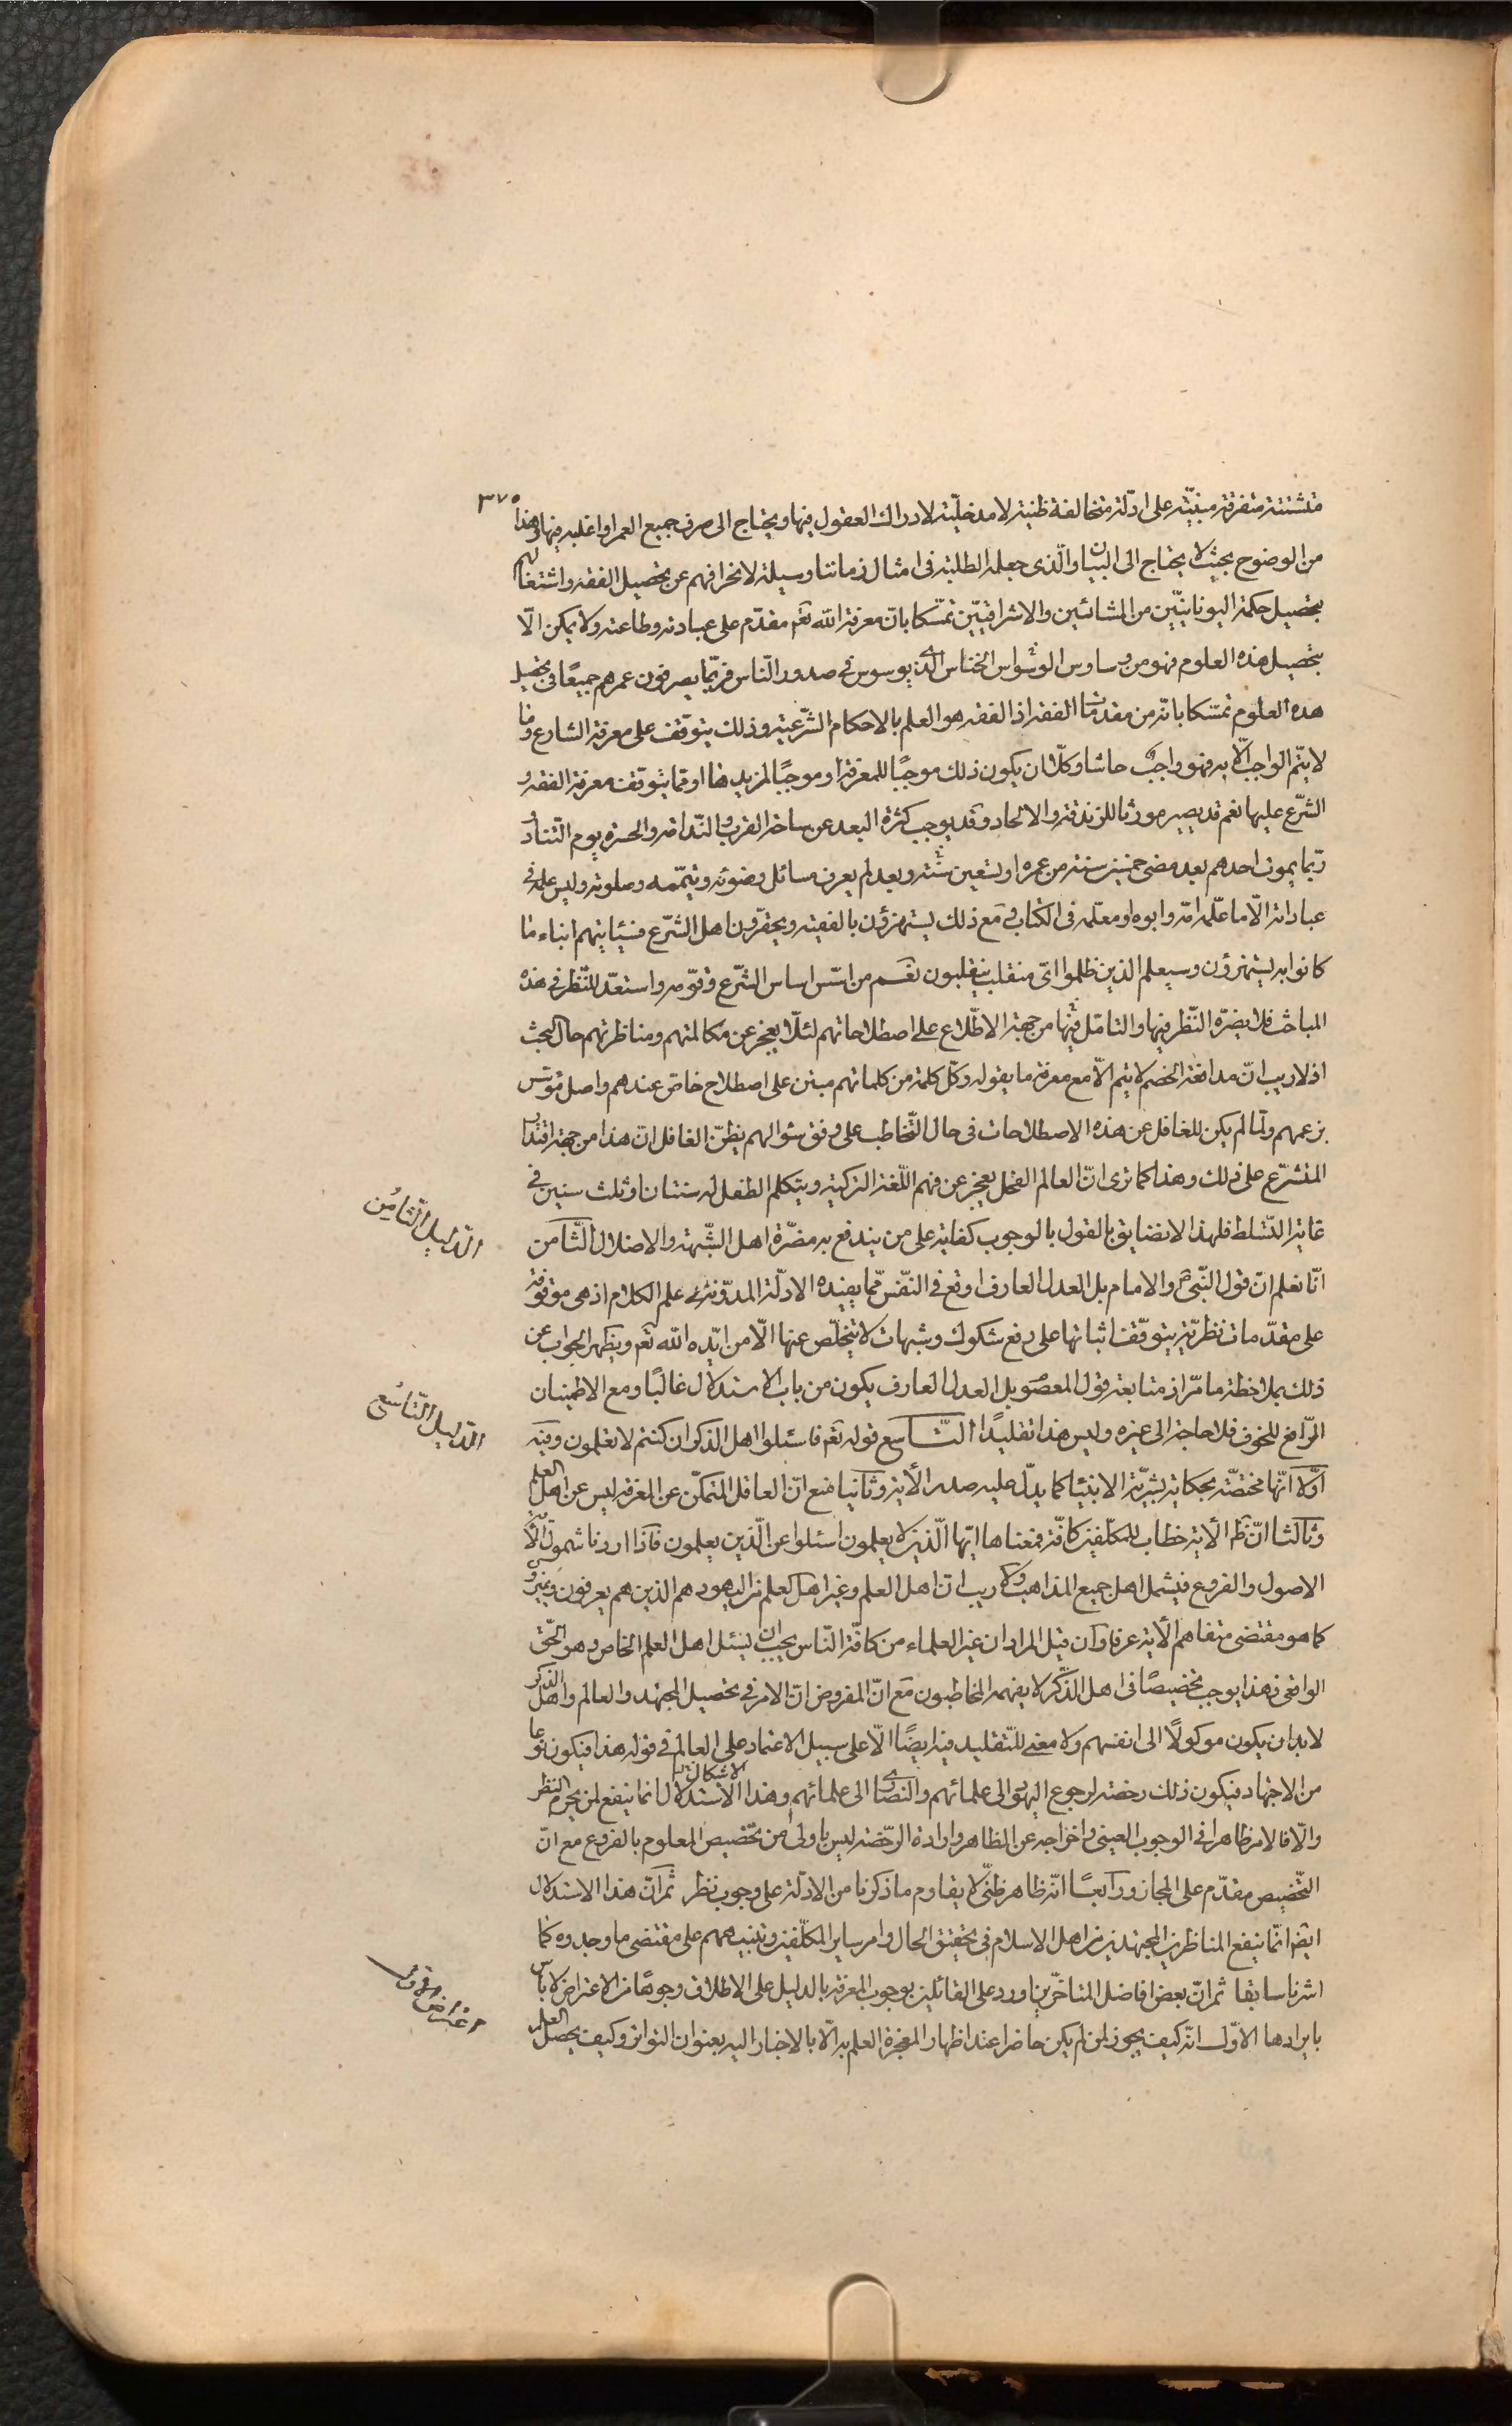 ٣٧٥
متشتتة متفرقة مبنيّة على ادلّة متخالفة ظنية لا مدخليّة لادراك العقول فيها ويحتاج الى صرف جميع العمر او اغلبه فيها وهذا
من الوضوح بحيث لا يحتاج الى البيان والّذى جعله الطلبة فى امثال زماننا وسيلة لانحرافهم عن تحصيل الفقه واشتغالهم
بتحصيل حكمة اليونانيّين من المشائين والاشراقيّين تمسّكا بانّ معرفة الله تعم مقدّم على عبادته وطاعته ولا يمكن الّا
بتحصيل هذه العلوم فهو من وساوس الوسواس الخناس الّذى يوسوس فى صدور النّاس فربّما يصرفون عمرهم جميعًا فى تحصيل
هذه العلوم تمسّكا بانّه من مقدمات الفقه اذ الفقه هو العلم بالاحكام الشّرعية وذلك يتوقّف على معرفة الشارع وما
لا يتّم الواجب الّا به فهو واجب حاشا وكلّا ان يكون ذلك موجبًا للمعرفة او موجبًا لمزيدها او ممّا يتوقّف معرفة الفقه و
الشّرع عليها نعم قد يصير مورثا للزندقة والالحاد وقد يوجب كثرة البعد عن ساحة القرب والنّدامة والحسرة يوم التّناد و
ربّما يموت احدهم بعد مضى خمسين سنة من عمره او تسعين سنة وبعد لم يعرف مسائل وضوئه وتيمّمه وصلوته وليس علمه فى
عباداته الّا ما علّمه امّه وابوه او معلّمه فى الكتاب ومع ذلك يستهزؤن بالفقيه ويحقّرون اهل الشّرع فسيأتيهم انباء ما
كانوا به يستهزؤن وسيعلم الذين ظلموا اىّ منقلب ينقلبون نعم من اسّس اساس الشّرع وقوّمه واستعدّ للنّظر فى هذه
المباحث فلا يضرّه النّظر فيها والتامّل فيها من جهة الاطّلاع على اصطلاحاتهم لئلّا يعجز عن مكالمتهم ومناظرتهم حال البحث
اذ لا ريب انّ مدافعة الخصم لا يتم الّا مع معرفة ما يقوله وكلّ كلمة من كلماتهم مبتن على اصطلاح خاصّ عندهم واصل مؤسّس
بزعمهم ولمّا لم يكن للغافل عن هذه الاصطلاحات فى حال التّخاطب على وفق سؤالهم يظنّ الغافل انّ هذا من جهة اقتدار
المتشرّع على ذلك وهذا كما ترى انّ العالم الفحل يعجز عن فهم اللّغة التركية ويتكلم الطفل له سنتان او ثلث سنين فى
غاية التّسلط فلهذا لا نضايق بالقول بالوجوب كفاية على من يندفع به مضرّة اهل الشّبهة والاضلال الثّامن
انّا نعلم انّ قول النّبىّ ص والامام بل العدل العارف اوقع فى النّفس ممّا يفيده الادلّة المدوّنة فى علم الكلام اذ هى موقوفة
على مقدّمات نظريّة يتوقّف اثباتها على دفع شكوك وشبهات لا يتخلّص عنها الّا من ايّده الله تعم ويظهر الجواب عن
ذلك بملاحظة ما مرّ اذ متابعة قول المعصوم بل العدل العارف يكون من باب الاستدلال غالبًا ومع الاطمينان
الرّافع للخوف فلا حاجة الى غيره وليس هذا تقليدًا التّاسع قوله تعم فاسئلوا اهل الذكر ان كنتم لا تعلمون وفيه
اوّلًا انّها مختصّة بحكاية بشريّة الانبيا كما يدلّ عليه صدر الأية وثانيا منع انّ العاقل المتمكّن عن المعرفة ليس عن اهل العلم
وثالثا انّ ظ الأية خطاب للمكلّفين كافّة فمعناها ايّها الّذين لا يعلمون اسئلوا عن الّذين يعلمون فاذا اردنا شموله
الاصول والفروع فيشمل اهل جميع المذاهب ولا ريب ان اهل العلم وغير اهل العلم من اليهود هم الذين هم يعرفون
كما هو مقتضى متفاهم الأية عرفا وان قيل المراد ان غير العلماء من كافّة النّاس يجب ان يسئل اهل العلم الخاص وهو الحقّ
الواقعى فهذا يوجب تخصيصًا فى اهل الذّكر لا يفهمه المخاطبون مع انّ المفروض انّ الامر فى تحصيل المجتهد والعالم واهل الذّكر
لابد ان يكون موكولًا الى انفسهم ولا معنى للتّقليد فيه ايضًا الّا على سبيل الاعتماد على العالم فى قوله هذا فيكون نوعا
من الاجتهاد فيكون ذلك رخصة لرجوع اليهود الى علمائهم والنصارى الى علمائهم وهذا الاستدلال انما ينفع لمن يحرم النظر
والّا فالامر ظاهر فى الوجوب العينى واخراجه عن الظاهر وارادة الرّخصة ليس باولى من تخصيص المعلوم بالفروع مع انّ
التّخصيص مقدّم على المجاز ورابعًا انّه ظاهر ظنّى لا يقاوم ما ذكرنا من الادلّة على وجوب نظر ثم انّ هذا الاستدلال
ايضا انّما ينفع المناظرين المجتهدين من اهل الاسلام فى تحقيق الحال وامر ساير المكلّفين وتنبيههم على مقتضى ما وجدوه كما
اشرنا سابقا ثم انّ بعض افاضل المتاخّرين اورد على القائلين بوجوب المعرفة بالدليل على الاطلاق وجوهًا من الاعتراض لا باس
بايرادها الاوّل انّه كيف يجوز لمن لم يكن حاضرا عند اظهار المعجزة العلم به الّا بالاخبار اليه بعنوان التواتر وكيف يحصل العلم
الدّليل الثّامن
الدّليل التّاسع